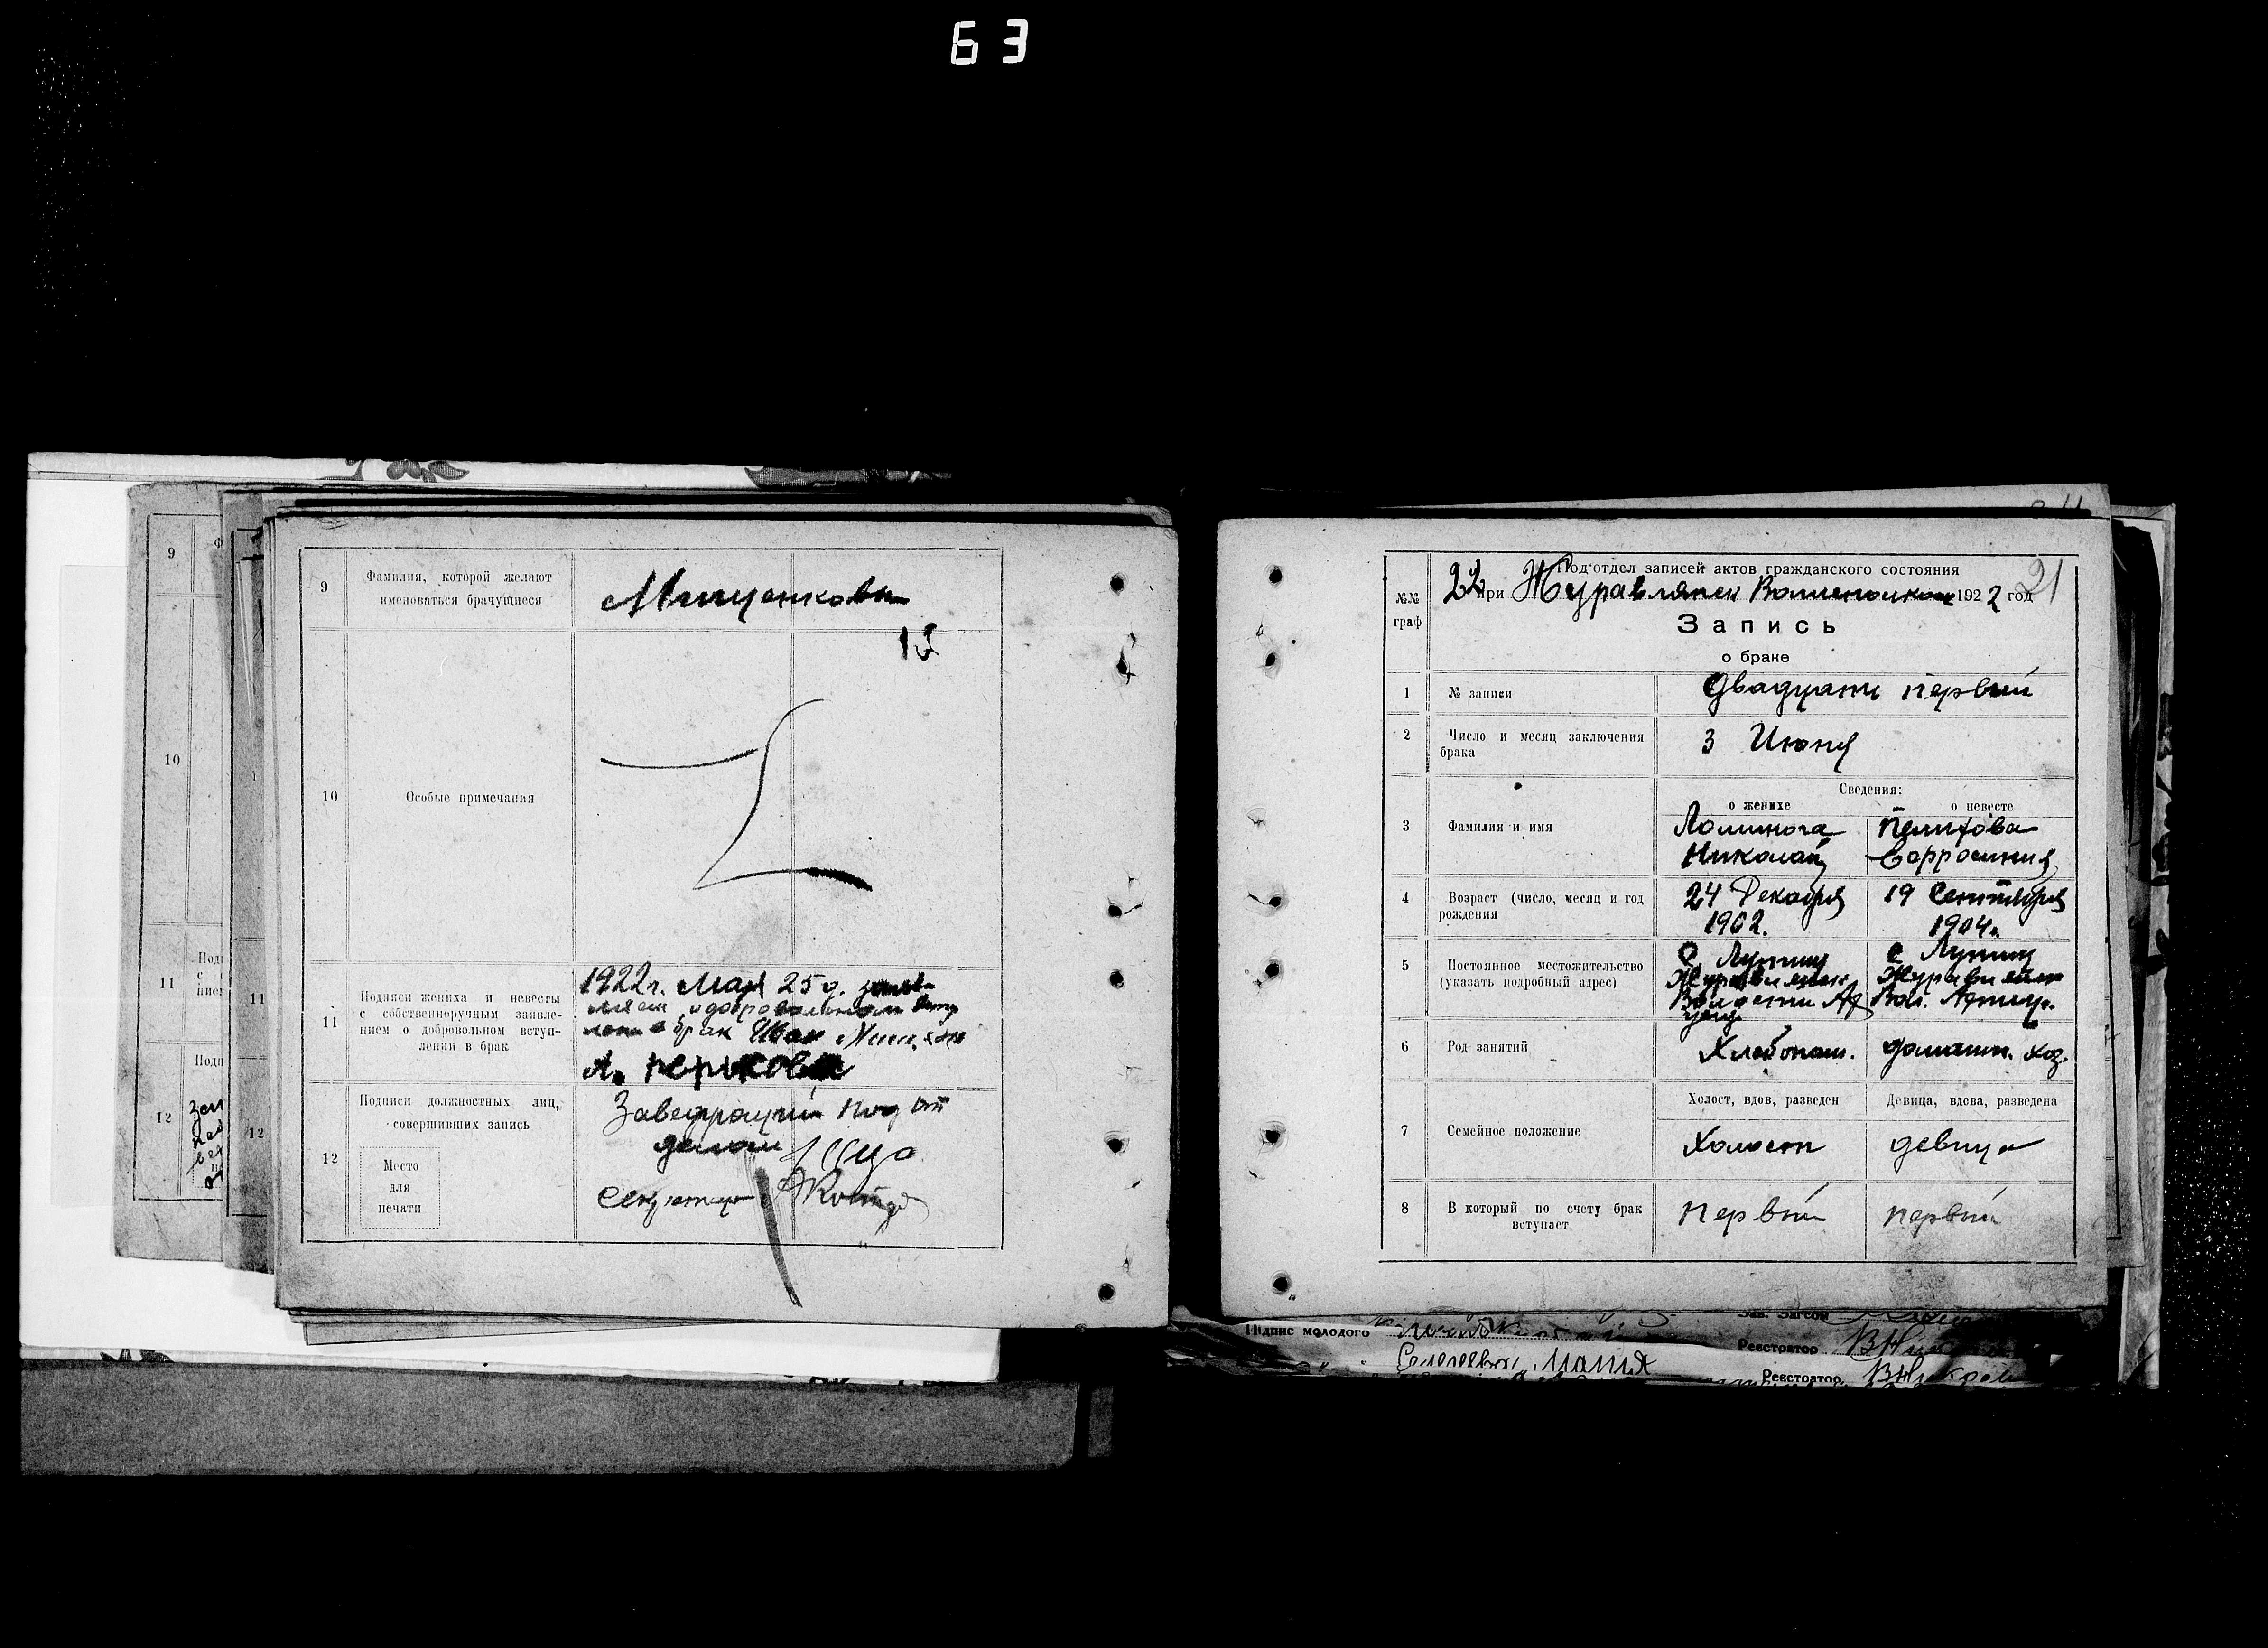 63
9
Фамилия, которой желают
именоваться брачущиеся
Мищенкови
15
10
Особые примечания
11
Подписи жениха и невесты
с собственноручным заявле-
нием о добровольном вступ-
лении в брак
1922г. Мая 25 д. заяв-
ляем о добровольном вступ
брак Иван
А.
12
Подписи должностных лиц,
совершивших запись
Место
для
печати
Заведующий под от
делом
Секретарь
9
10
11
12
11
12
№№
граф
Под'отдел записей актов гражданского состояния
22 при Журавлянск 1922 год
21
Запись
о браке
1
№ записи
Двадцать первый
2
Число и месяц заключения
брака
3 Июня
Сведения:
о женихе
о невесте
3
Фамилия и имя
Ломинога
Николай
Пелихова
4
Возраст (число, месяц и год
рождения
24 Декабря
1902.
19 Сентября
1904г.
5
Постоянное местожительство
(указать подробный адрес)
С
Журавлянск
Волости
с
Журавлянск
Вол.
6
Род занятий
Хлебопаш.
домашн. хоз.
7
Семейное положение
Холост, вдов, разведен
Девица, вдова, разведена
Холост
девица
8
В который по счету брак
вступает
первый
первый
Підпис молодого
Зав. Загсом
Реєстратор
Реєстратор